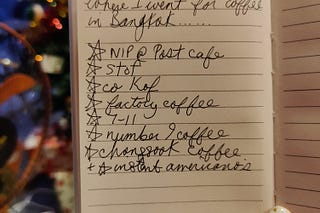 where I went for coffee
in Bangkok......
☆ NIP @ Post cafe
☆ Stot
☆ co Kof
☆ factory coffee
☆ 7-11
☆ number 9 coffee
☆ changrook coffee
+ ☆ instant americano's